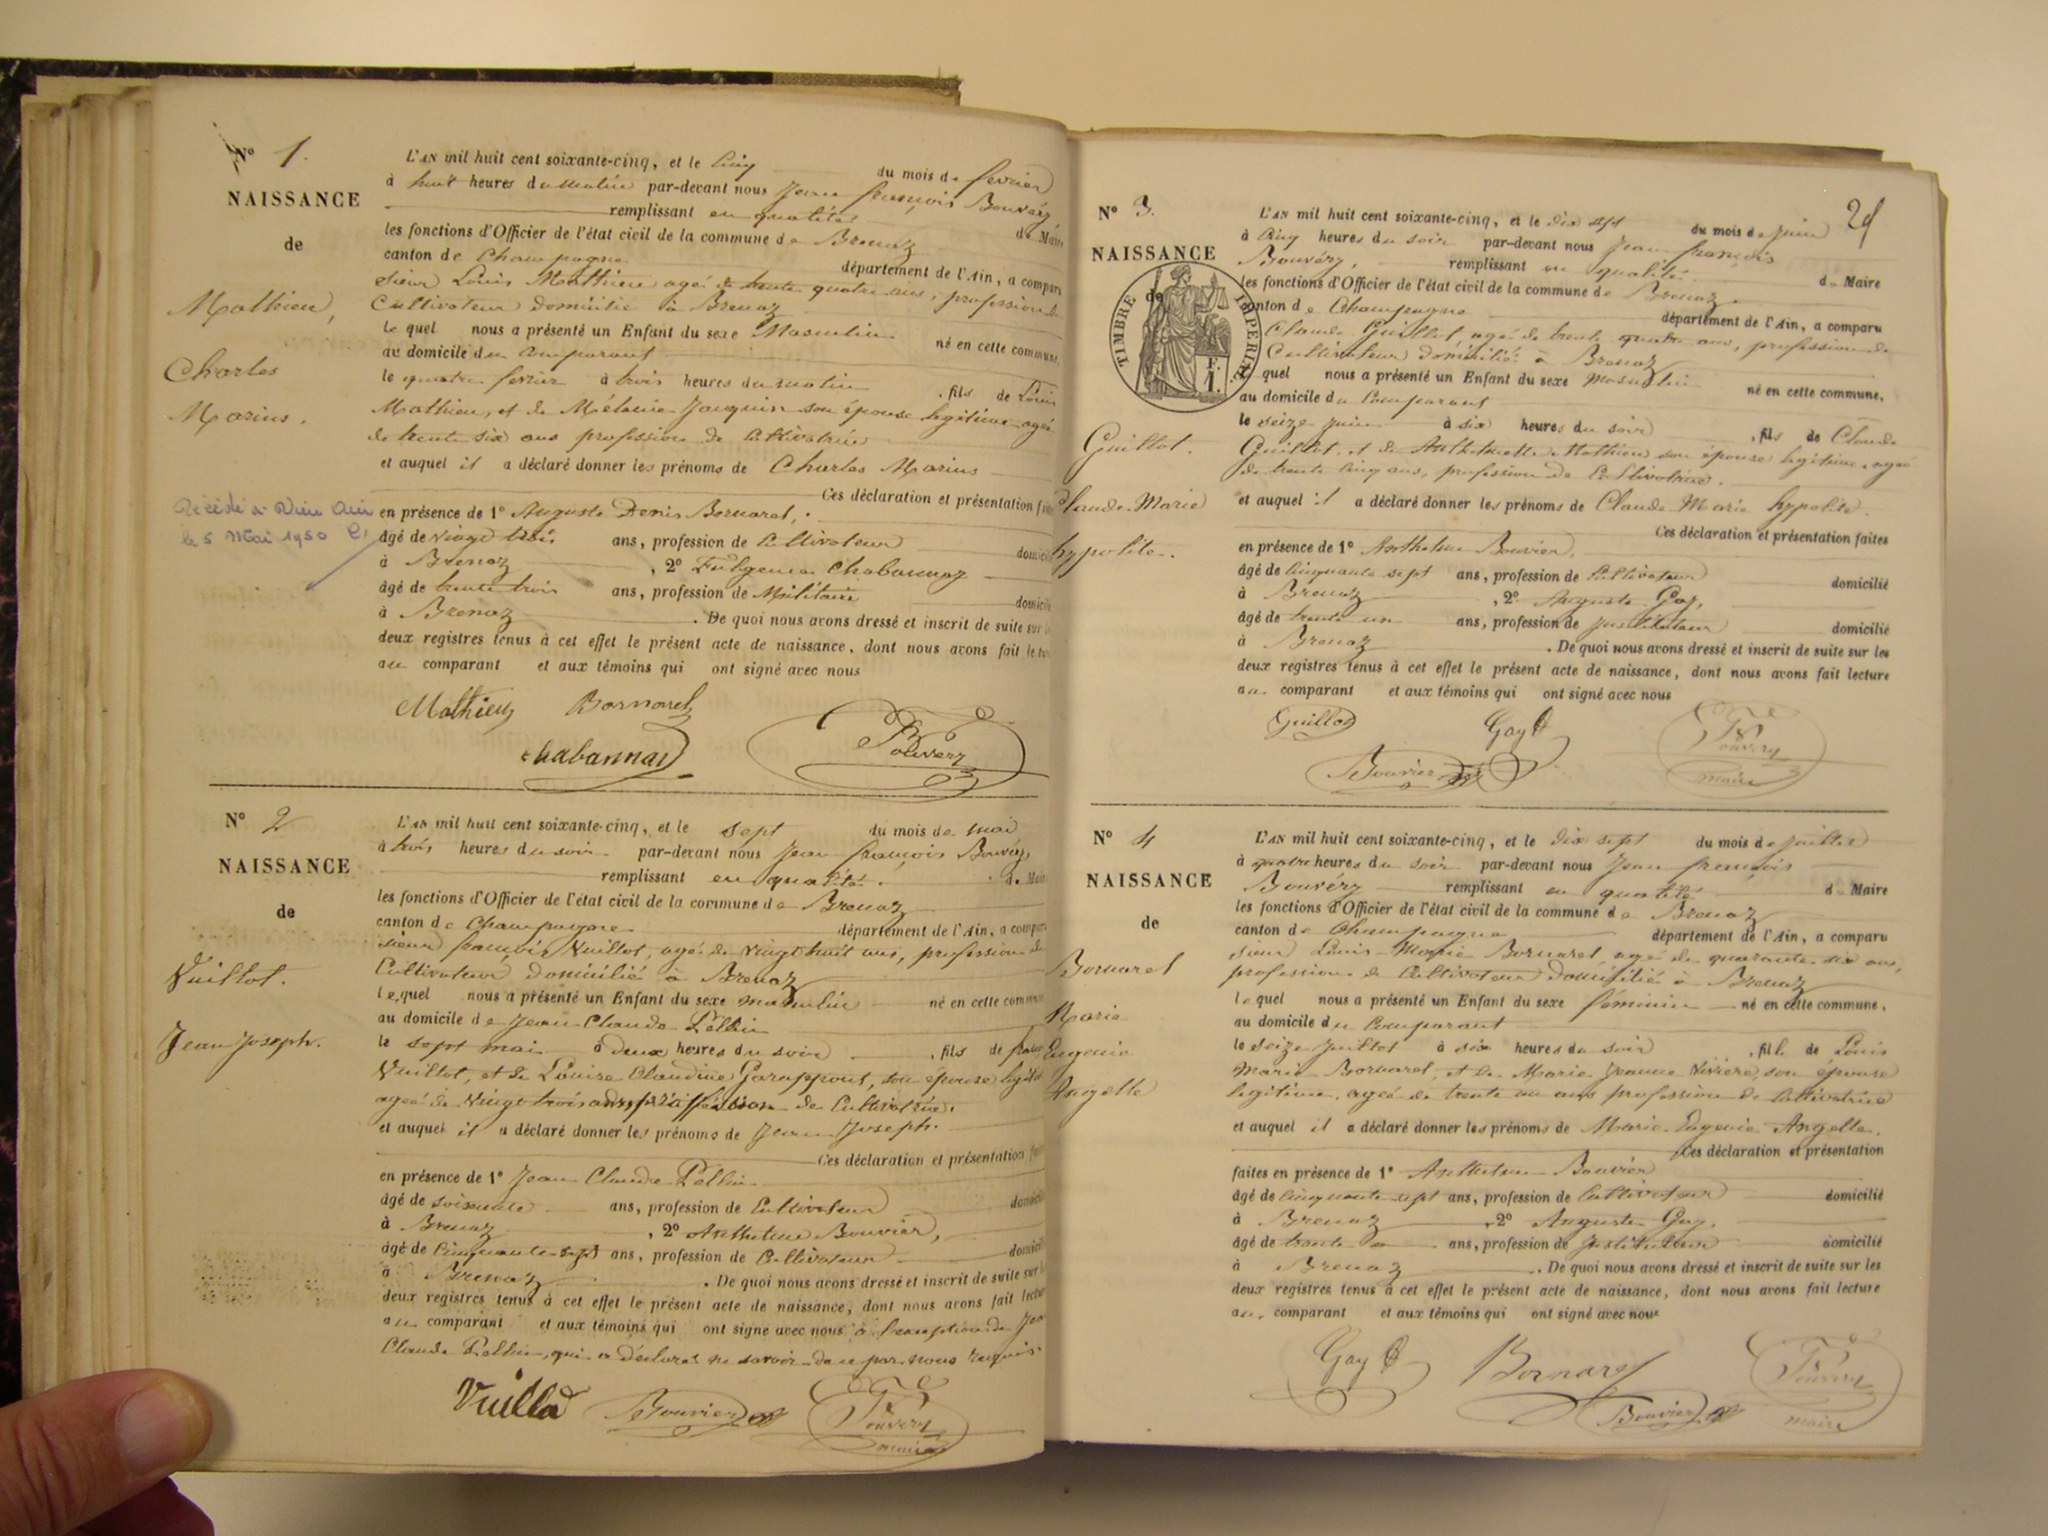 N° 1.
NAISSANCE
de
Mathieu,
Charles
Marius.
Décédé à Vieu Ain
le 5 Mai 1950
L'AN mil huit cent soixante-cinq, et le Cinq du mois de fevrier
à huit heures du matin par-devant nous Jean françois Bouvéry,
remplissant en qualité de Maire
les fonctions d'Officier de l'état civil de la commune de Brenaz
canton de Champagne département de l'Ain, a comparu
sieur Louis Mathieu agé de trente quatre ans, profession de
Cultivateur domicilié à Brenaz
le quel nous a présenté un Enfant du sexe Masculin né en cette commune,
au domicile du comparant
le quatre fevrier à trois heures du matin, fils de Louis
Mathieu, et de Mélanie Jacquin son épouse legitime agée
de trente six ans profession de Cultivatrice
et auquel il a déclaré donner les prénoms de Charles Marius
Ces déclaration et présentation faites
en présence de 1° Auguste Denis Bornarel,
âgé de vingt trois ans, profession de Cultivateur domicilié
à Brenaz, 2° Fulgence Chabannaz
âgé de trente trois ans, profession de Militaire domicilié
à Brenaz. De quoi nous avons dressé et inscrit de suite sur les
deux registres tenus à cet effet le présent acte de naissance, dont nous avons fait lecture
au comparant et aux témoins qui ont signé avec nous
Mathieu Bornarel
Chabannaz Bouvery
N° 2
NAISSANCE
de
Vuillot.
Jean Joseph.
L'AN mil huit cent soixante-cinq, et le sept du mois de mai
à trois heures du soir par-devant nous Jean françois Bouvéry,
remplissant en qualité de Maire
les fonctions d'Officier de l'état civil de la commune de Brenaz
canton de Champagne département de l'Ain, a comparu
sieur françois Vuillot, agé de vingt huit ans, profession de
Cultivateur domicilié à Brenaz
le quel nous a présenté un Enfant du sexe masculin né en cette commune
au domicile de Jean Claude Pellin
le sept mai à deux heures du soir, fils de françois
Vuillot, et de Louise Claudine son épouse legitime
agée de vingt trois ans, profession de Cultivatrice.
et auquel il a déclaré donner les prénoms de Jean Joseph.
Ces déclaration et présentation faites
en présence de 1° Jean Claude Pellin
âgé de soixante ans, profession de Cultivateur domicilié
à Brenaz, 2° Anthelme Bouvier,
âgé de Cinquante-sept ans, profession de Cultivateur domicilié
à Brenaz. De quoi nous avons dressé et inscrit de suite sur les
deux registres tenus à cet effet le présent acte de naissance, dont nous avons fait lecture
au comparant et aux témoins qui ont signé avec nous à l'exception de Jean
Claude Pellin, qui a déclaré ne savoir de ce par nous requis.
Vuillod Bouvier Bouvery
maire
24
N° 3.
NAISSANCE
de
TIMBRE IMPERIAL
1 F.
Guillot.
Claude Marie
hypolite.
L'AN mil huit cent soixante-cinq, et le dix sept du mois de juin
à Cinq heures du soir par-devant nous Jean françois
Bouvéry, remplissant en qualité de Maire
les fonctions d'Officier de l'état civil de la commune de Brenaz.
canton de Champagne département de l'Ain, a comparu
Claude Guillot agé de trente quatre ans, profession de
Cultivateur domicilié à Brenaz
le quel nous a présenté un Enfant du sexe masculin né en cette commune,
au domicile du Comparant
le seize juin à six heures du soir, fils de Claude
Guillot, et de Anthelmette Mathieu son épouse legitime, agée
de trente cinq ans, profession de Cultivatrice.
et auquel il a déclaré donner les prénoms de Claude Marie hypolite.
Ces déclaration et présentation faites
en présence de 1° Anthelme Bouvier,
âgé de Cinquante sept ans, profession de Cultivateur domicilié
à Brenaz, 2° Auguste Gay,
âgé de trente un ans, profession de Instituteur domicilié
à Brenaz. De quoi nous avons dressé et inscrit de suite sur les
deux registres tenus à cet effet le présent acte de naissance, dont nous avons fait lecture
au comparant et aux témoins qui ont signé avec nous
Guillod Gay Bouvery
Bouvier maire
N° 4
NAISSANCE
de
Bornarel
Marie
Eugenie
Angelle
L'AN mil huit cent soixante-cinq, et le dix sept du mois de juillet
à quatre heures du soir par-devant nous Jean françois
Bouvéry remplissant en qualité de Maire
les fonctions d'Officier de l'état civil de la commune de Brenaz
canton de Champagne département de l'Ain, a comparu
sieur Louis-Marie Bornarel, agé de quarante six ans,
profession de Cultivateur domicilié à Brenaz
le quel nous a présenté un Enfant du sexe féminin né en cette commune,
au domicile du Comparant
le seize juillet à six heures du soir, fille de Louis
Marie Bornarel, et de Marie Jeanne Vivière, son épouse
legitime, agée de trente un ans profession de Cultivatrice
et auquel il a déclaré donner les prénoms de Marie Eugenie Angelle.
Ces déclaration et présentation
faites en présence de 1° Anthelme Bouvier
âgé de Cinquante sept ans, profession de Cultivateur domicilié
à Brenaz, 2° Auguste Gay,
âgé de trente un ans, profession de Instituteur domicilié
à Brenaz. De quoi nous avons dressé et inscrit de suite sur les
deux registres tenus à cet effet le présent acte de naissance, dont nous avons fait lecture
au comparant et aux témoins qui ont signé avec nous
Gay Bornarel Bouvery
Bouvier maire